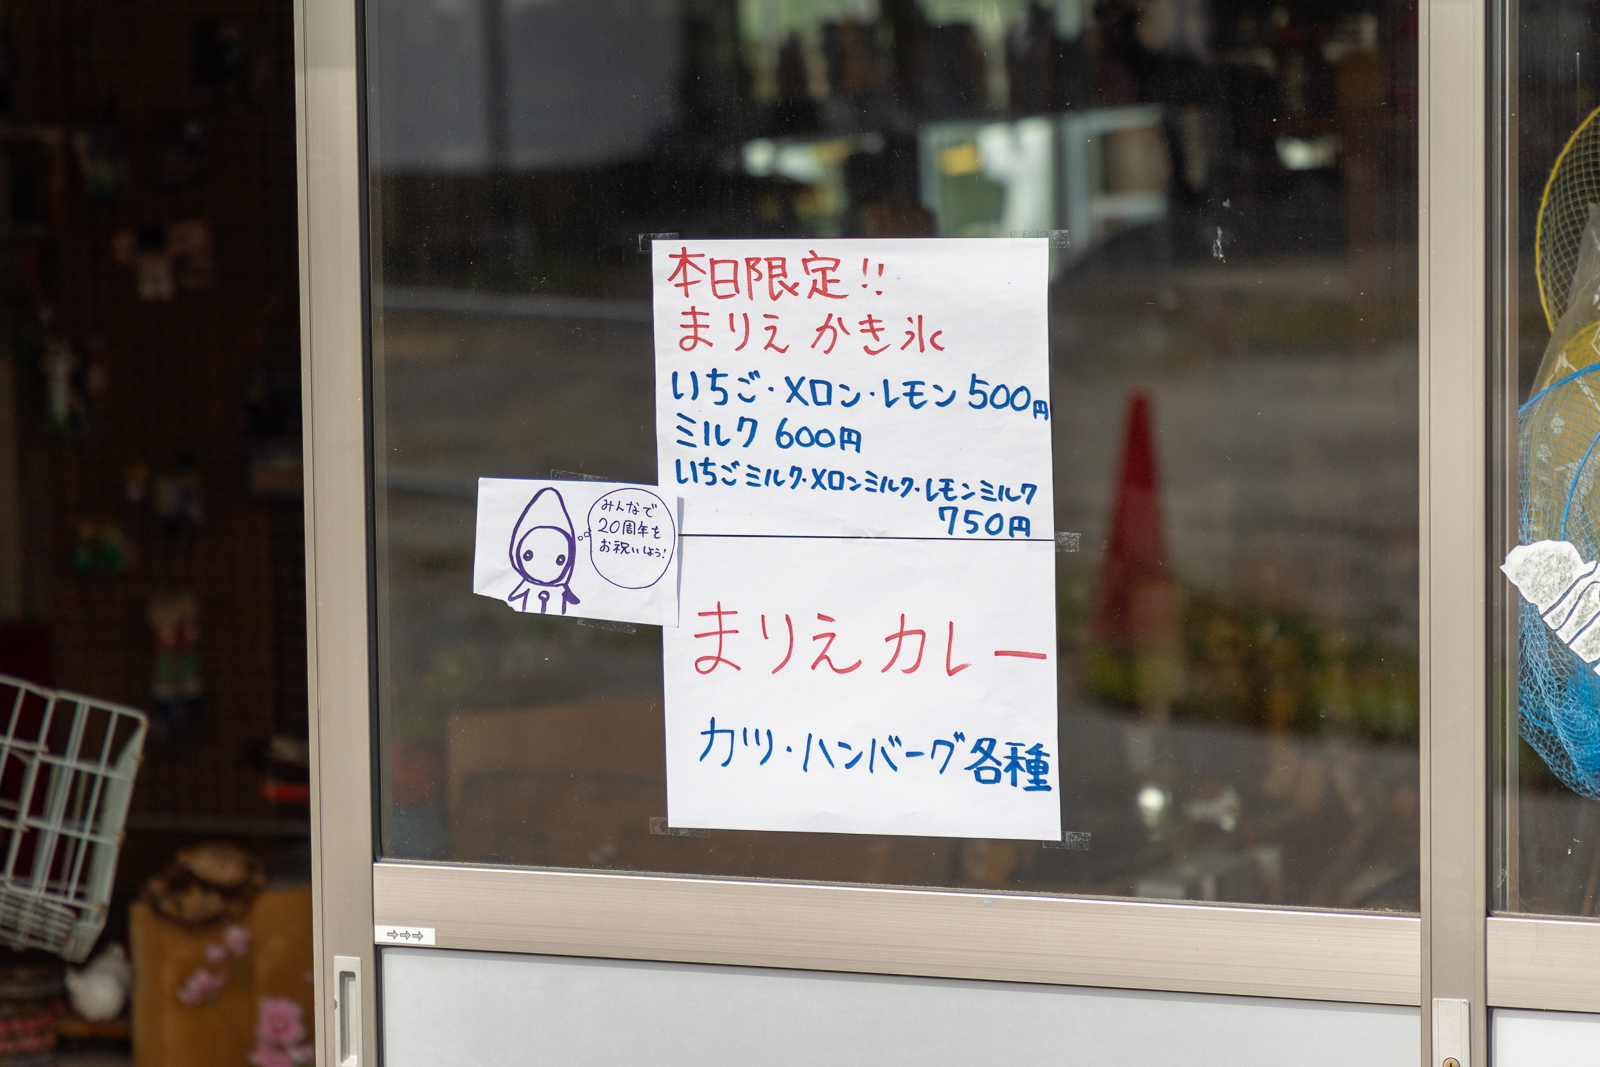 本日限定!!
まりえ かき氷
いちご・メロン・レモン 500円
ミルク 600円
いちごミルク・メロンミルク・レモンミルク
750円
みんなで
20周年を
お祝いしよう!
まりえ カレー
カツ・ハンバーグ各種